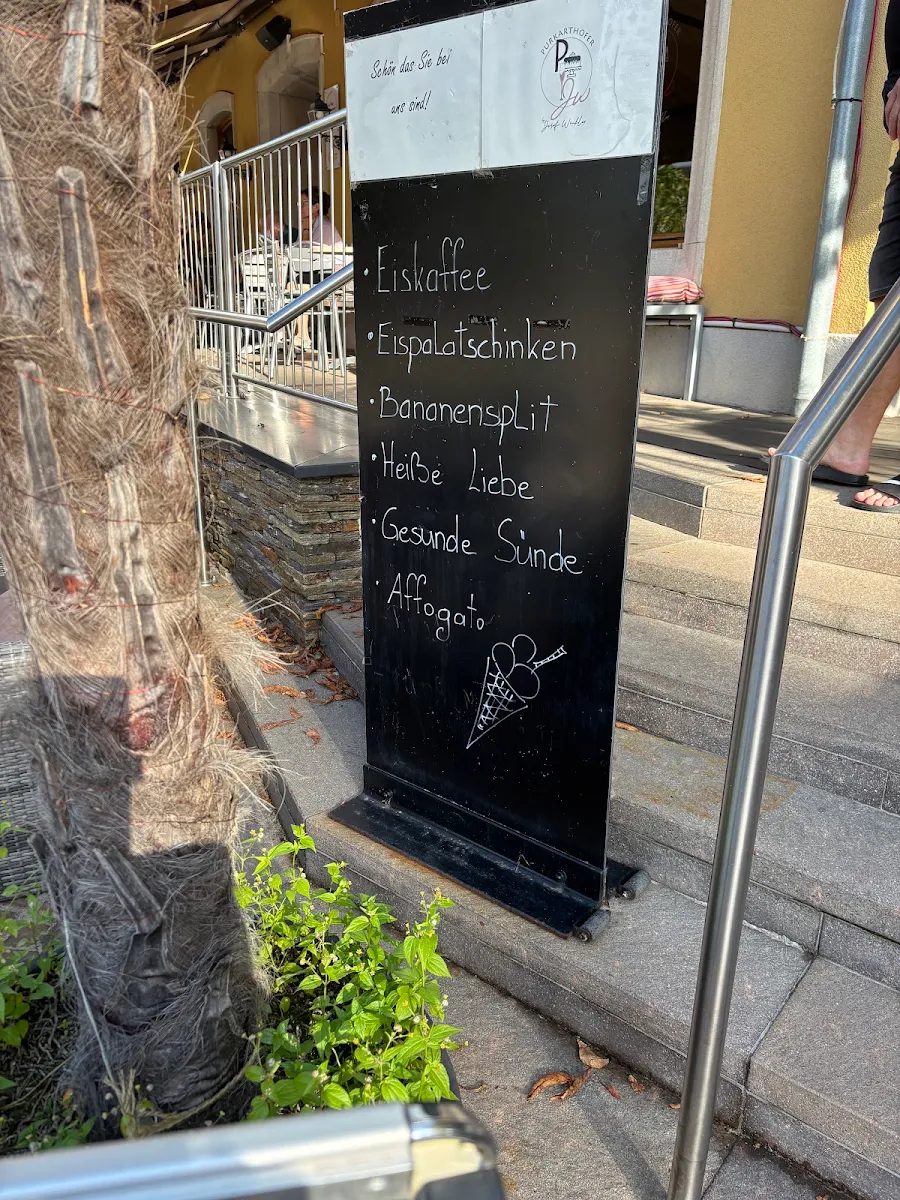 Schön das Sie bei
uns sind!
PURKARTHOFER
P
JW
by Josef Winkler
• Eiskaffee
• Eispalatschinken
• Bananensplit
• Heiße Liebe
• Gesunde Sünde
• Affogato